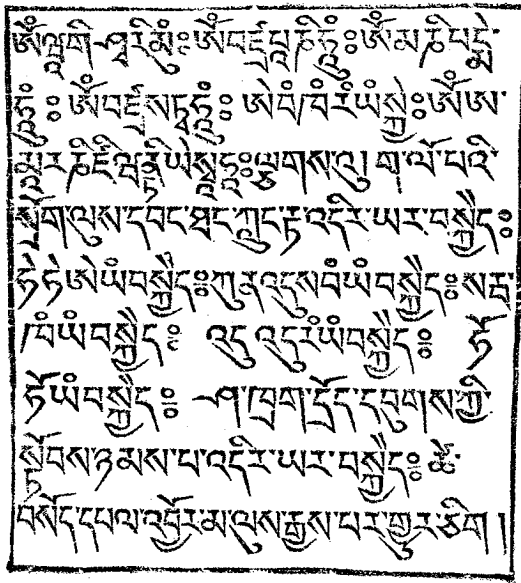 ཨོཾ་ཝཱགི་ཤྭརིམུཾ༔ཨོཾབཛྲཔཱཎིཧཱུྃ༔ཨོཾ་མཎིཔདྨེ་
ཧཱུྃ༔ ཨོཾབཛྲསཏྭཧཱུྃ༔ ཨེབཾཁཾརཾཡཾསྐྱེ༔ཨོཾཨ་
མཱརཎིཛཱིཝནྟིཡེསྭཱཧཱ༔ལྕགས་འུ། ག་ལོ་པའི་
སྲོག་ལུས་དབང་ཐང་ཀླུང་རྟ་འདིར་ཡར་བསྐྱེད༔
ཧེ་ཧེ་ཨེཡཾབསྐྱེད༔ཀུནའདུསབཾཡཾབསྐྱེད༔ སརྦ་
ཁཾཡཾབསྐྱེད༔ འདུ་འདུརཾཡཾབསྐྱེད༔ ཧོ་
ཧོཡཾབསྐྱེད༔ ཤ་ཁྲག་དྲོད་དབུགས་ཀྱི་
སྟོབས་ཉམས་པ་འདིར་ཡར་བསྐྱེད༔ ཚེ་
བསོད་དཔལ་འབྱོར་མ་ལུས་རྒྱས་པར་གྱུར་ཅིག །